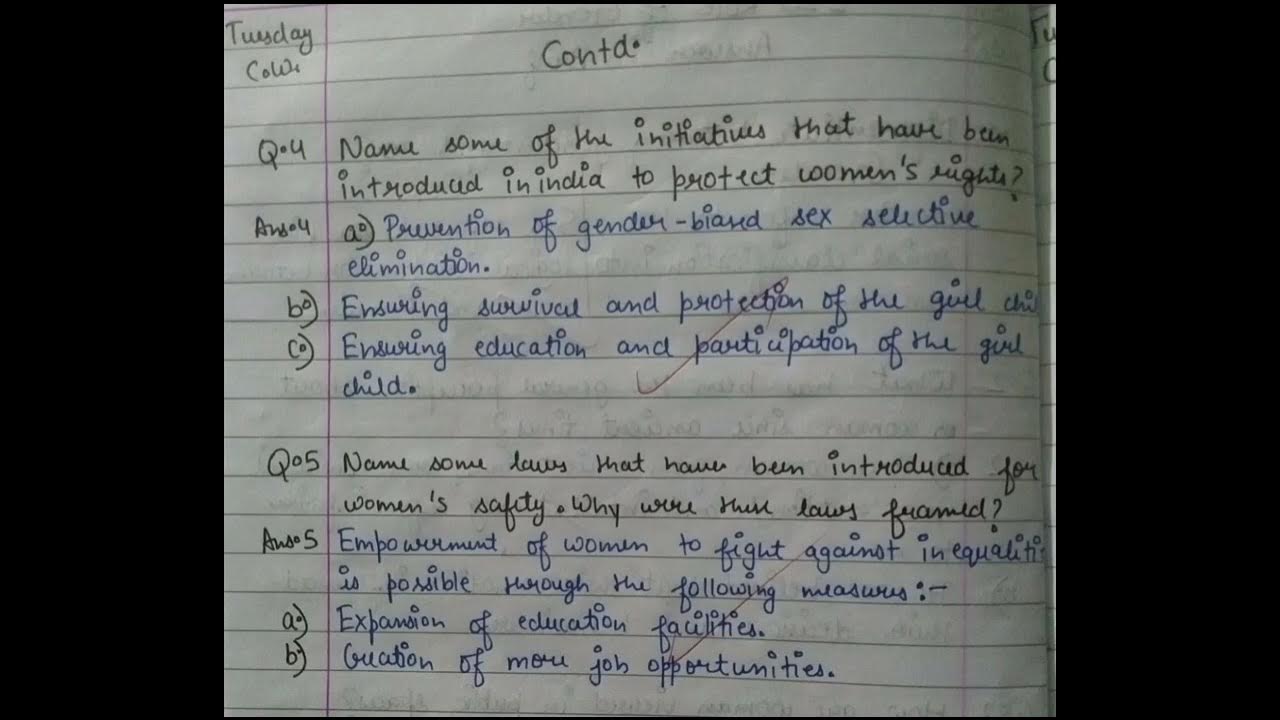 Tuesday
C.W.
Contd.
Q.4 Name some of the initiatives that have been
introduced in india to protect women's rights?
Ans.4 a.) Prevention of gender-biased sex selective
elimination.
b.) Ensuring survival and protection of the girl chi
c.) Ensuring education and participation of the girl
child.
Q.5 Name some laws that have been introduced for
women's safety. Why were these laws framed?
Ans.5 Empowerment of women to fight against inequaliti
is possible through the following measures:-
a.) Expansion of education facilities.
b.) Creation of more job opportunities.